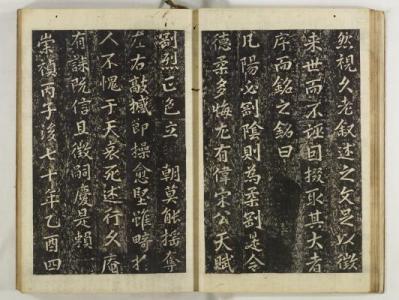 然視久老叙述之文足以徵
来世而不誣因掇取其大者
序而銘之銘曰
凡陽必剛陰則為柔剛令
德柔多悔尤有偉宋公天賦
剛烈正色立朝莫能搖奪
左右敲撼節操愈堅雖畸於
人不愧于天哀死述行久庵
有誄既信且徵嗣慶是賴
崇禎丙子後七十年乙酉四